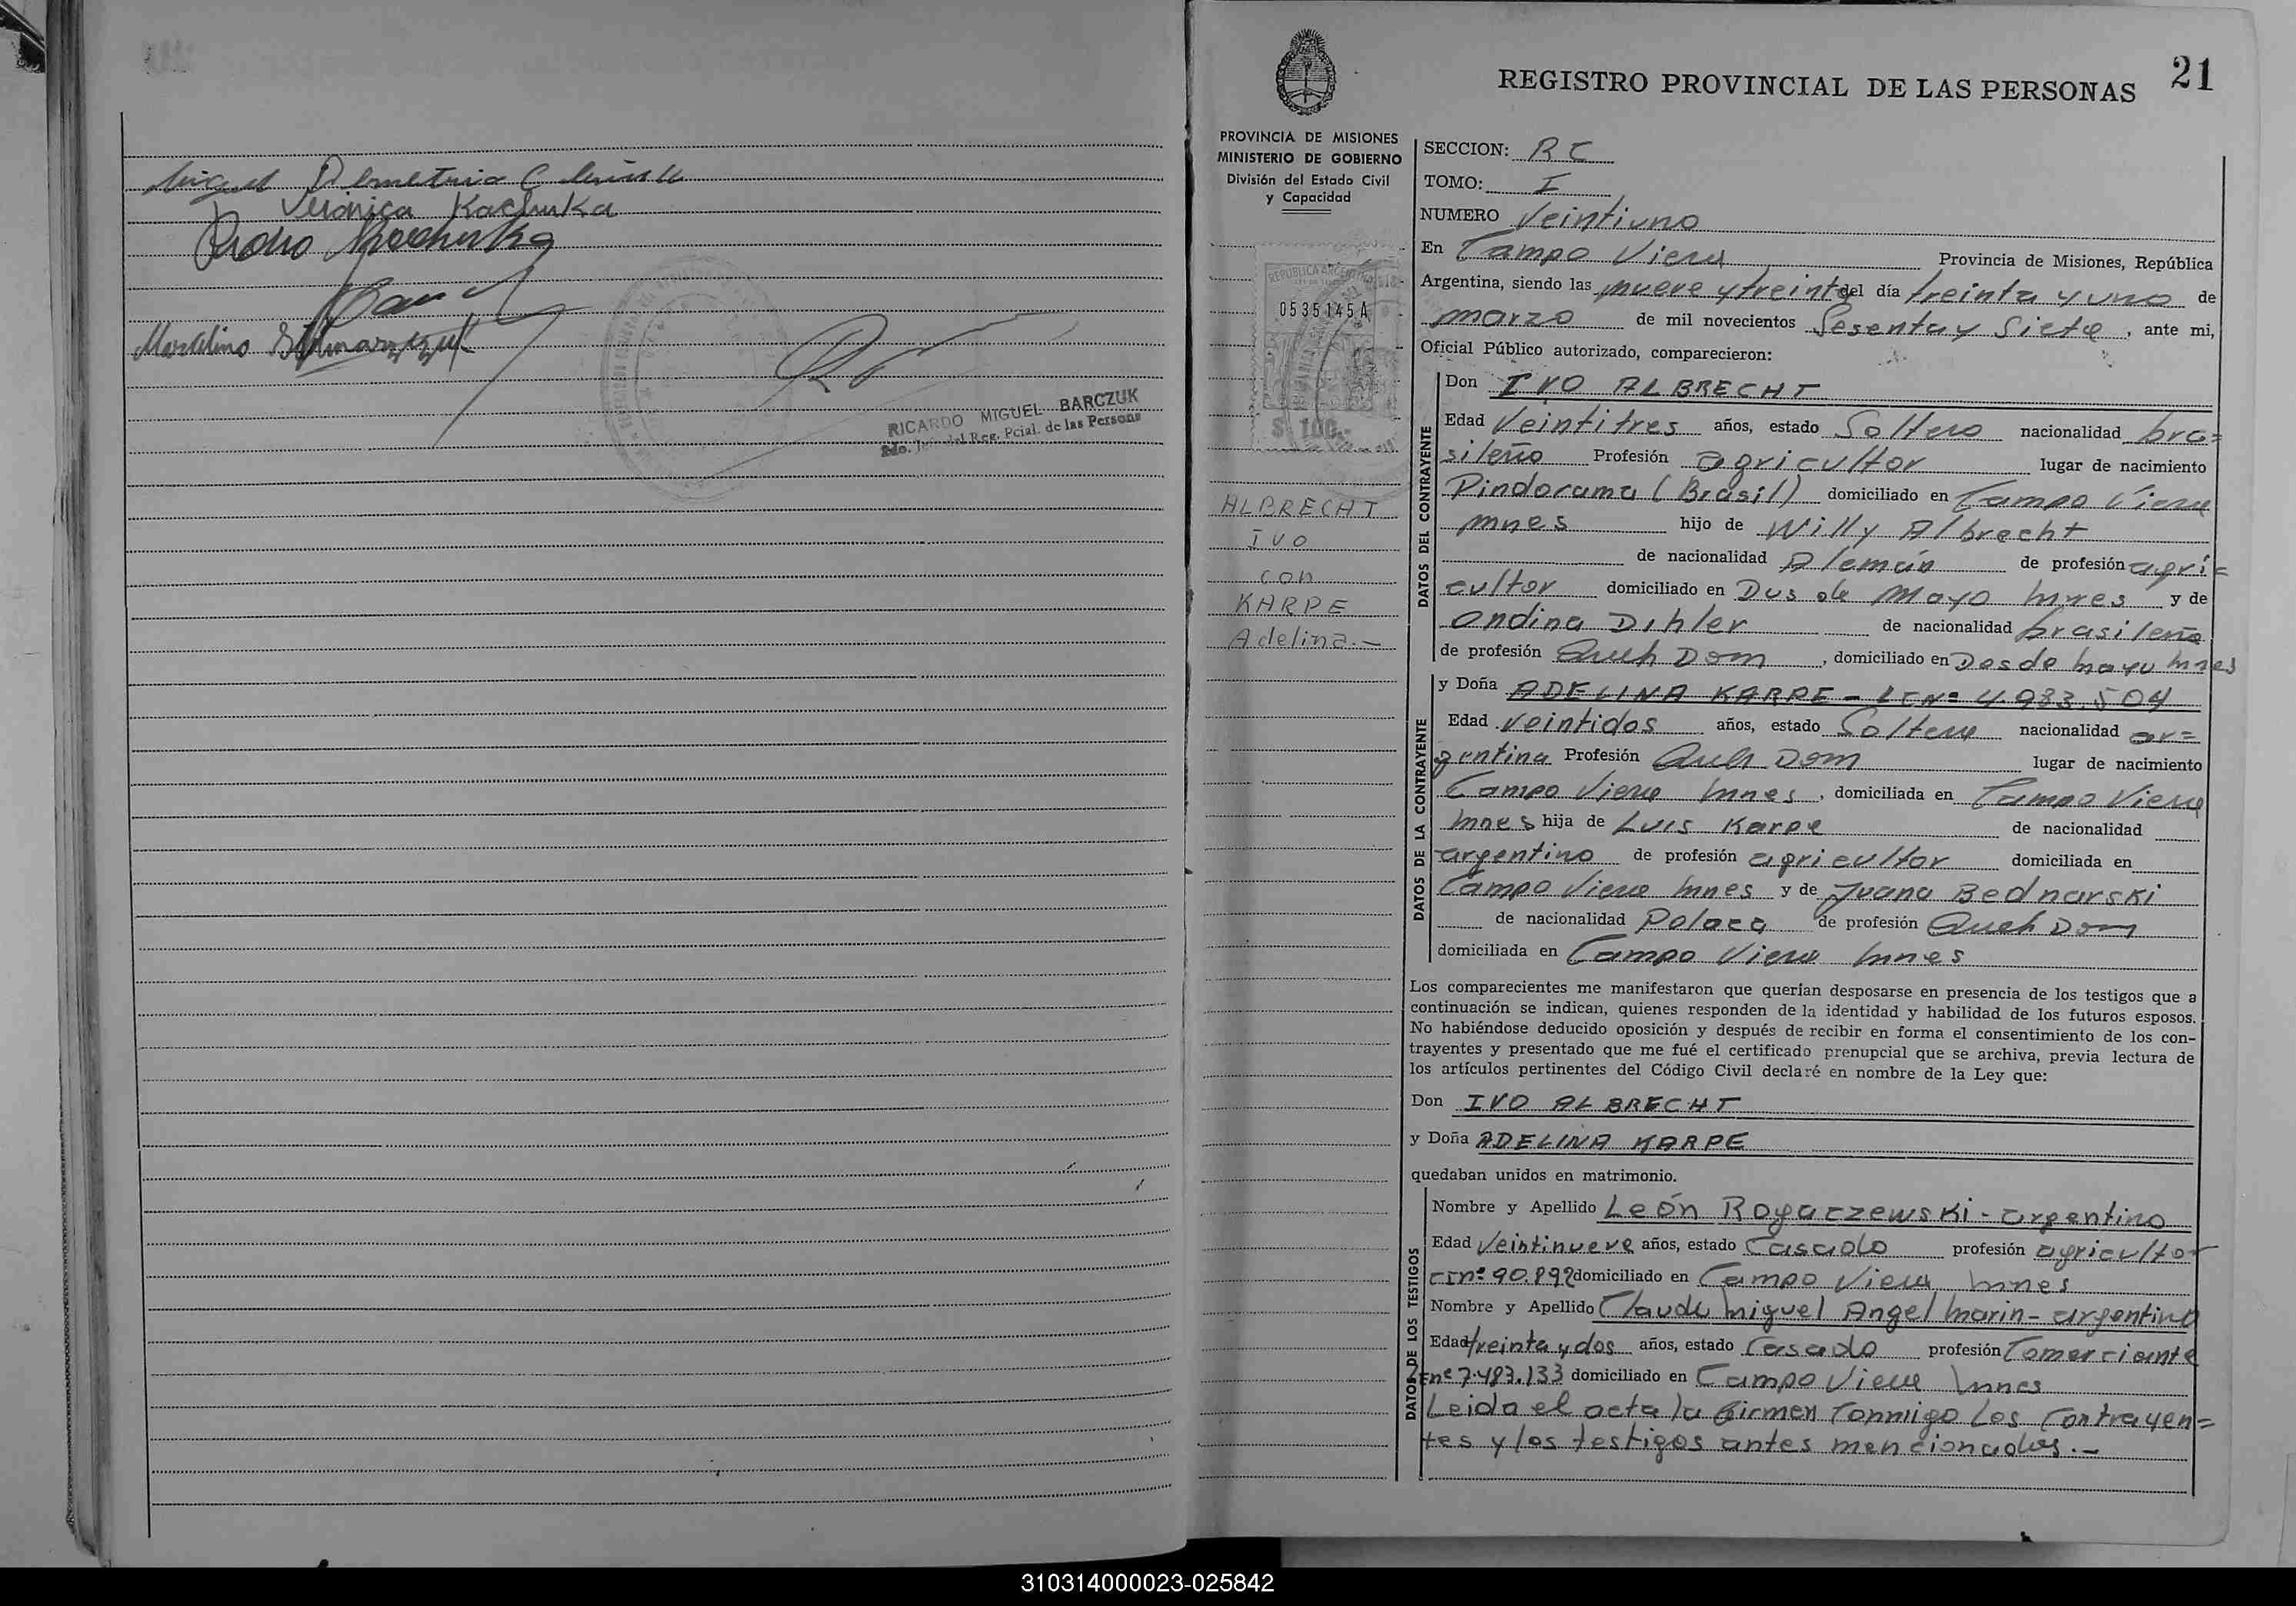 Miguel Demetrio
Veronica Kachuka
Pedro Kachuka
Marcelino
RICARDO MIGUEL BARCZUK
Reg. Pcial. de las Persons
21
REGISTRO PROVINCIAL DE LAS PERSONAS
PROVINCIA DE MISIONES
MINISTERIO DE GOBIERNO
División del Estado Civil
y Capacidad
REPUBLICA ARGENTINA
0535145A
$ 100.-
ALBRECHT
IVO
con
KARPE
Adelina.-
SECCION: RC
TOMO: I
NUMERO Veintiuno
En Campo Viera Provincia de Misiones, República
Argentina, siendo las nueve y treinta del día treinta y uno de
marzo de mil novecientos Sesenta y Siete, ante mi,
Oficial Público autorizado, comparecieron:
DATOS DEL CONTRAYENTE
Don IVO ALBRECHT
Edad Veintitres años, estado Soltero nacionalidad bra=
sileño Profesión agricultor lugar de nacimiento
Pindorama (Brasil) domiciliado en Campo Viera
Mnes hijo de Willy Albrecht
de nacionalidad Alemán de profesión agri=
cultor domiciliado en Dos de Mayo Mnes y de
Ondina Dihler de nacionalidad brasileña
de profesión Queh Dom, domiciliado en Dos de Mayo Mnes
DATOS DE LA CONTRAYENTE
y Doña ADELINA KARPE - LC Nº 4.983.504
Edad Veintidos años, estado Soltera nacionalidad ar=
gentina Profesión Queh Dom lugar de nacimiento
Campo Viera Mnes, domiciliada en Campo Viera
Mnes hija de Luis Karpe de nacionalidad
argentino de profesión agricultor domiciliada en
Campo Viera Mnes y de Juana Bednarski
de nacionalidad Polaca de profesión Queh Dom
domiciliada en Campo Viera Mnes
Los comparecientes me manifestaron que querían desposarse en presencia de los testigos que a
continuación se indican, quienes responden de la identidad y habilidad de los futuros esposos.
No habiéndose deducido oposición y después de recibir en forma el consentimiento de los con-
trayentes y presentado que me fué el certificado prenupcial que se archiva, previa lectura de
los artículos pertinentes del Código Civil declaré en nombre de la Ley que:
Don IVO ALBRECHT
y Doña ADELINA KARPE
quedaban unidos en matrimonio.
DATOS DE LOS TESTIGOS
Nombre y Apellido León Rogaczewski - argentino
Edad Veintinueve años, estado Casado profesión agricultor
CI nº 90.892 domiciliado en Campo Viera Mnes
Nombre y Apellido Claudu Miguel Angel Marin - argentino
Edad treinta y dos años, estado Casado profesión Comerciante
nº 7.483.133 domiciliado en Campo Viera Mnes
Leida el acta la firmen Conmigo Los Contrayen=
tes y los testigos antes mencionados.-
310314000023-025842